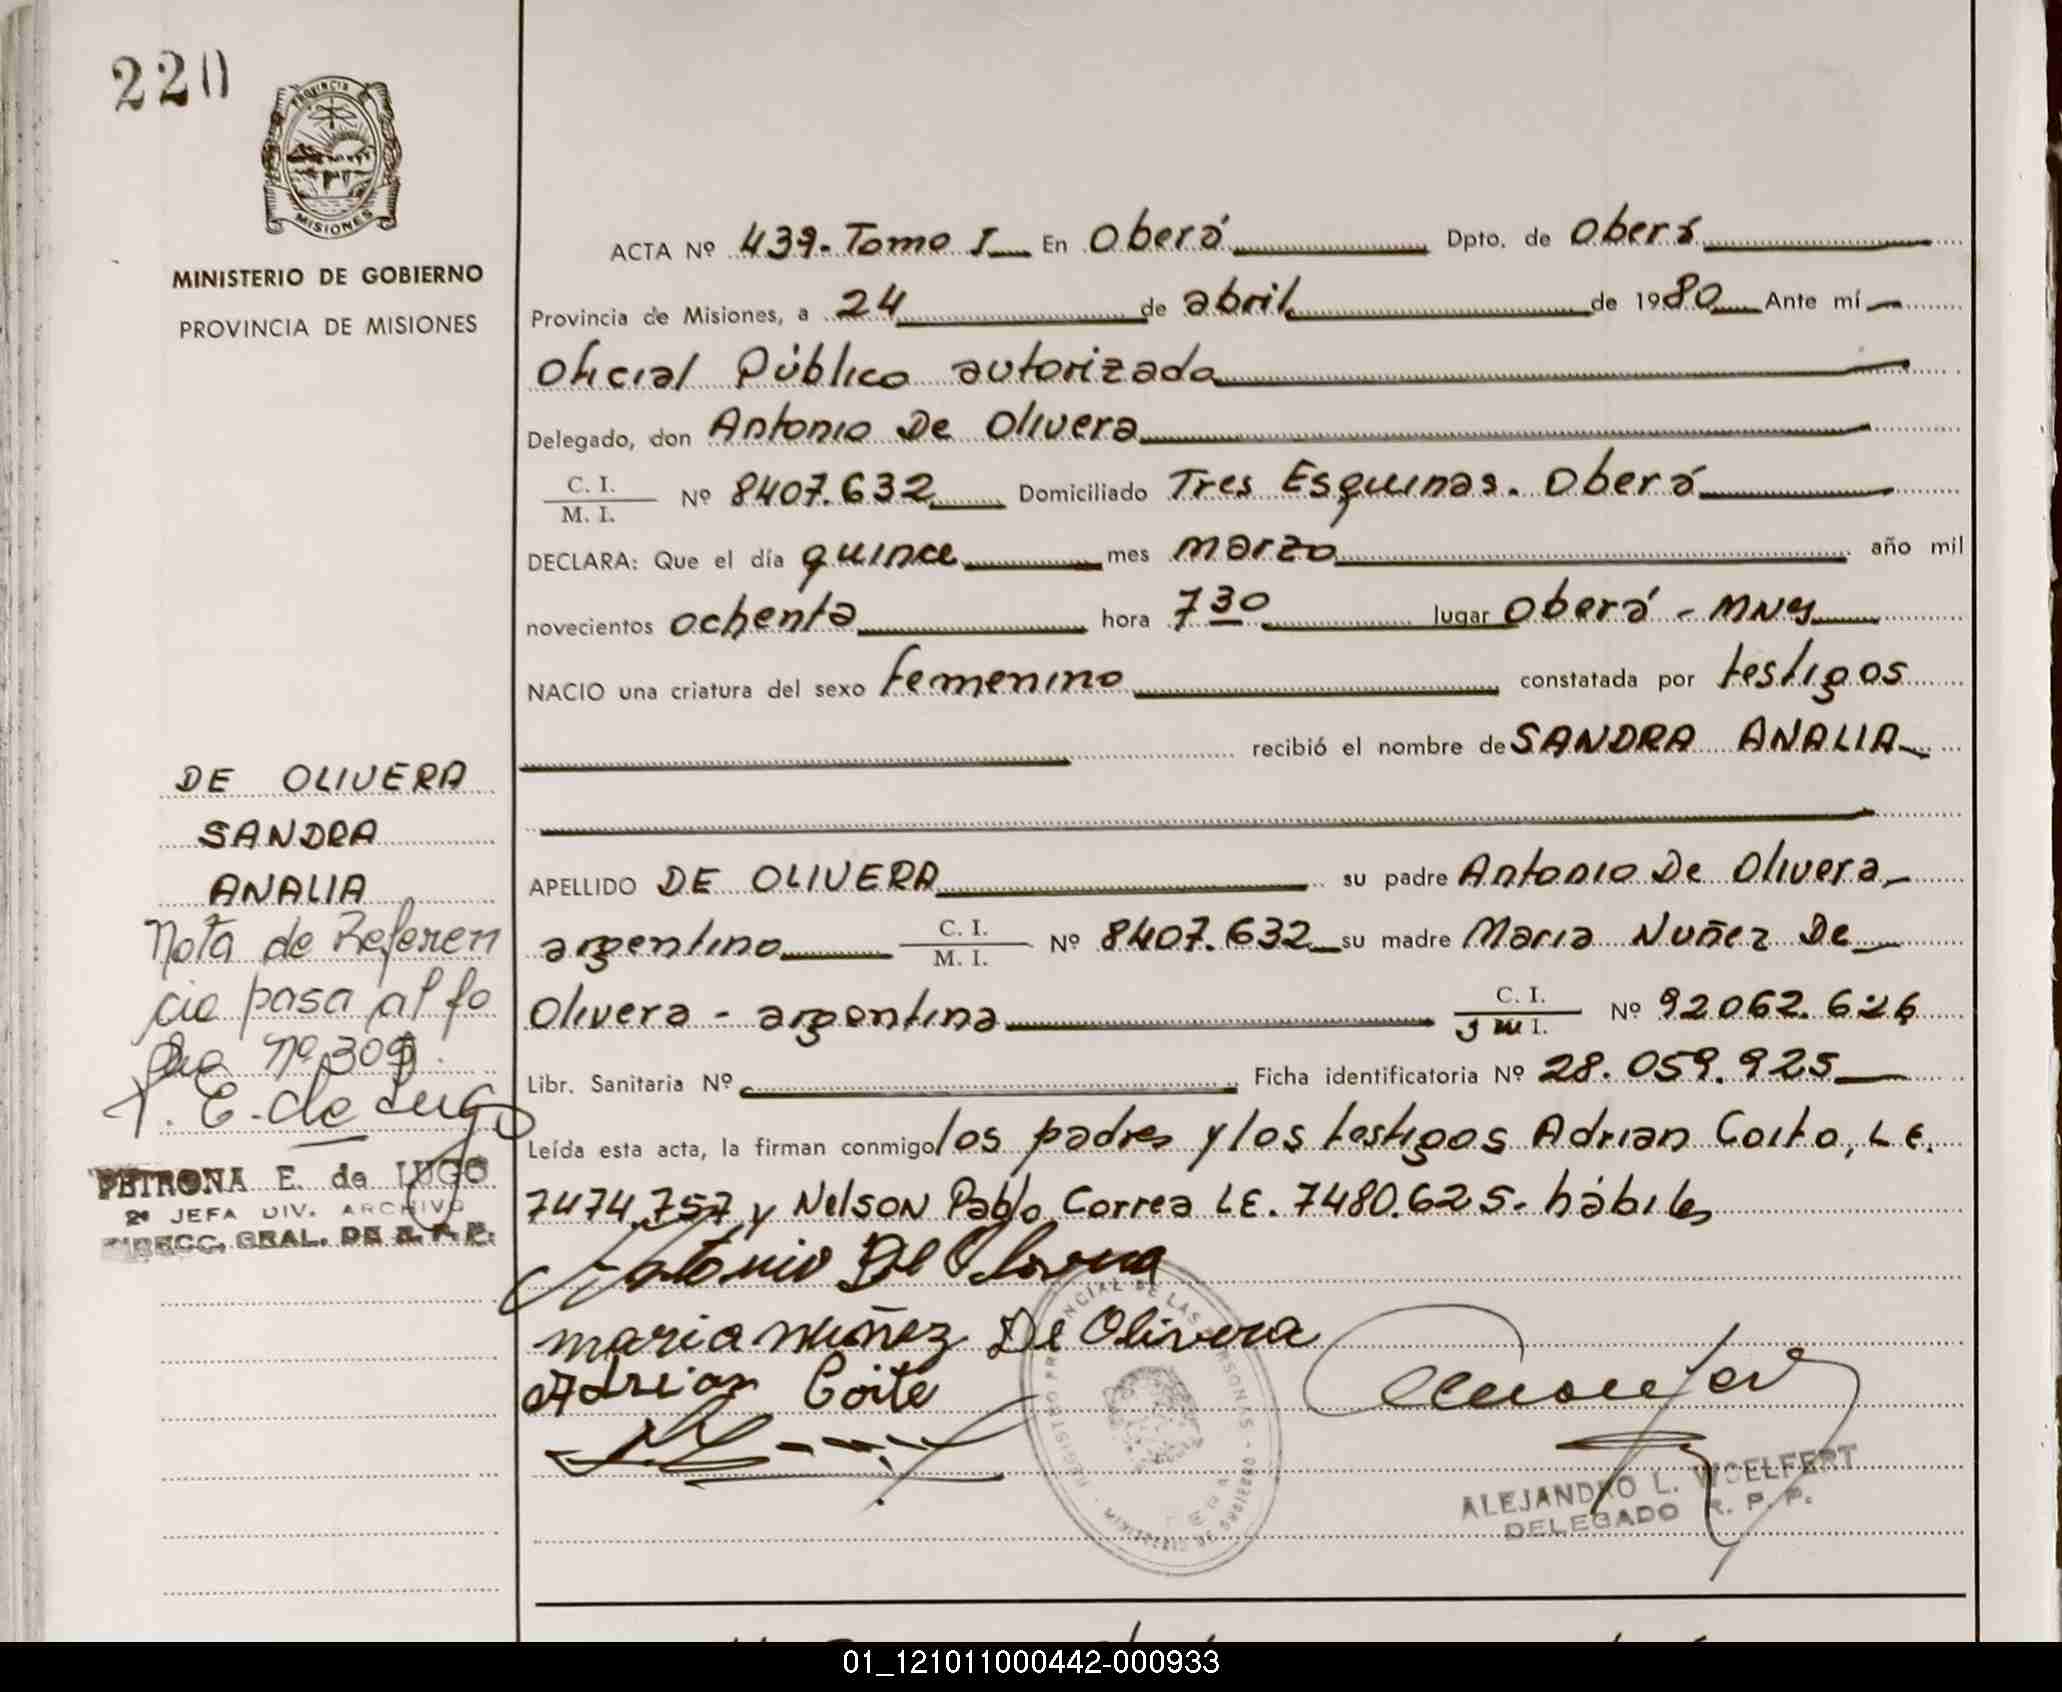 220
PROVINCIA DE
MISIONES
MINISTERIO DE GOBIERNO
PROVINCIA DE MISIONES
ACTA Nº 439. Tomo I En Oberá Dpto. de Oberá
Provincia de Misiones, a 24 de abril de 1980 Ante mí
Oficial Público autorizado
Delegado, don Antonio De Olivera
C. I.
M. I. Nº 8407.632 Domiciliado Tres Esquinas. Oberá
DECLARA: Que el día quince mes marzo año mil
novecientos ochenta hora 7 30 lugar Oberá - MNES
NACIO una criatura del sexo femenino constatada por testigos
recibió el nombre de SANDRA ANALIA
APELLIDO DE OLIVERA su padre Antonio De Olivera
argentino C. I. M. I. Nº 8407.632 su madre Maria Nuñez De
Olivera - argentina C. I. Nº 92062.626
Libr. Sanitaria Nº Ficha identificatoria Nº 28.059.925
Leída esta acta, la firman conmigo los padres y los testigos Adrian Coito, L E.
7474.757 y Nelson Pablo Correa LE. 7480.625. hábiles
Antonio De Olivera
maria nuñez De Olivera
Adrian Coito
REGISTRO PROVINCIAL DE LAS PERSONAS
ALEJANDRO L. WOELFERT
DELEGADO R. P. P.
DE OLIVERA
SANDRA
ANALIA
Nota de Referen
cia pasa al fo
lio nº 309.
P. E. de Lugo
PETRONA E. de LUGO
2ª JEFA DIV. ARCHIVO
DIRECC. GRAL. DE R. P. P.
01_121011000442-000933